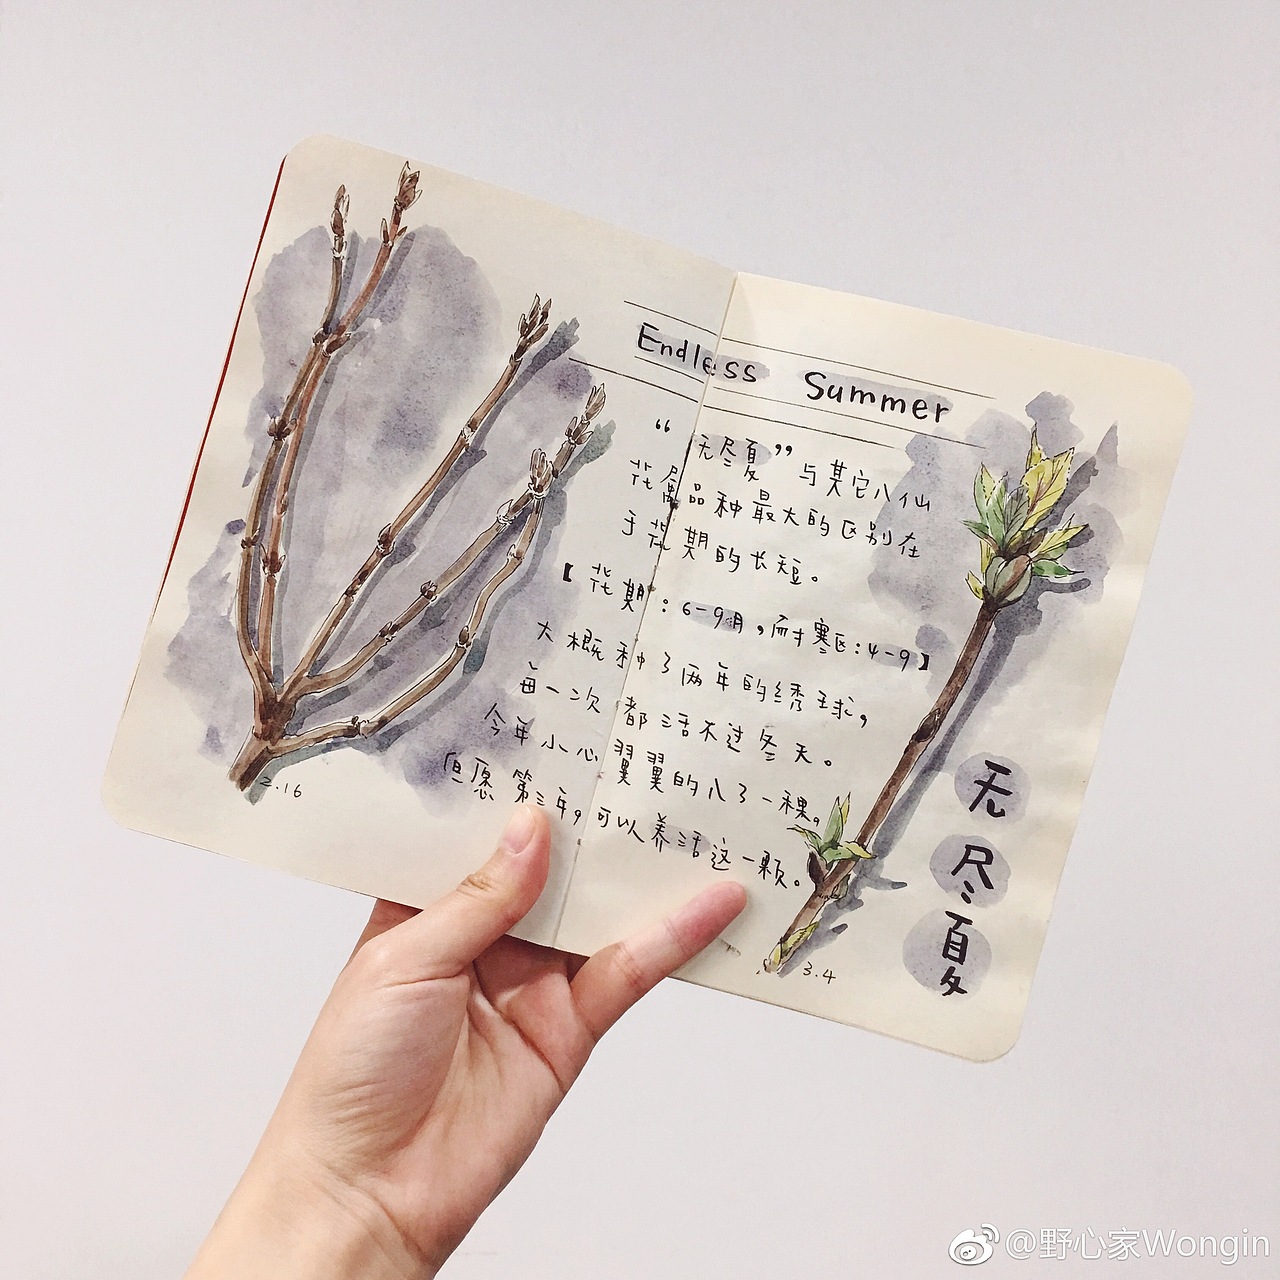 Endless Summer
“无尽夏”与其它八仙
花属品种最大的区别在
于花期的长短。
【花期：6-9月，而寒区：4-9】
大概种了两年的绣球，
每一次都活不过冬天。
今年小心翼翼的八了一稞。
但愿第三年，可以养活这一颗。
2.16
3.4
无
尽
夏
@野心家Wongin